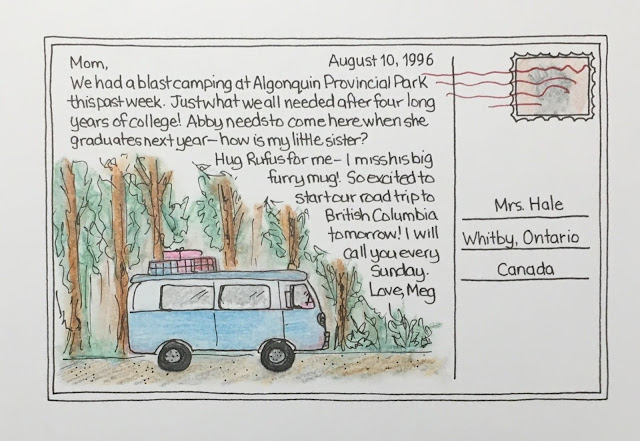 Mom,
August 10, 1996
We had a blast camping at Algonquin Provincial Park
this past week. Just what we all needed after four long
years of college! Abby needs to come here when she
graduates next year— how is my little sister?
Hug Rufus for me— I miss his big
furry mug! So excited to
start our road trip to
British Columbia
tomorrow! I will
call you every
Sunday.
Love, Meg
Mrs. Hale
Whitby, Ontario
Canada